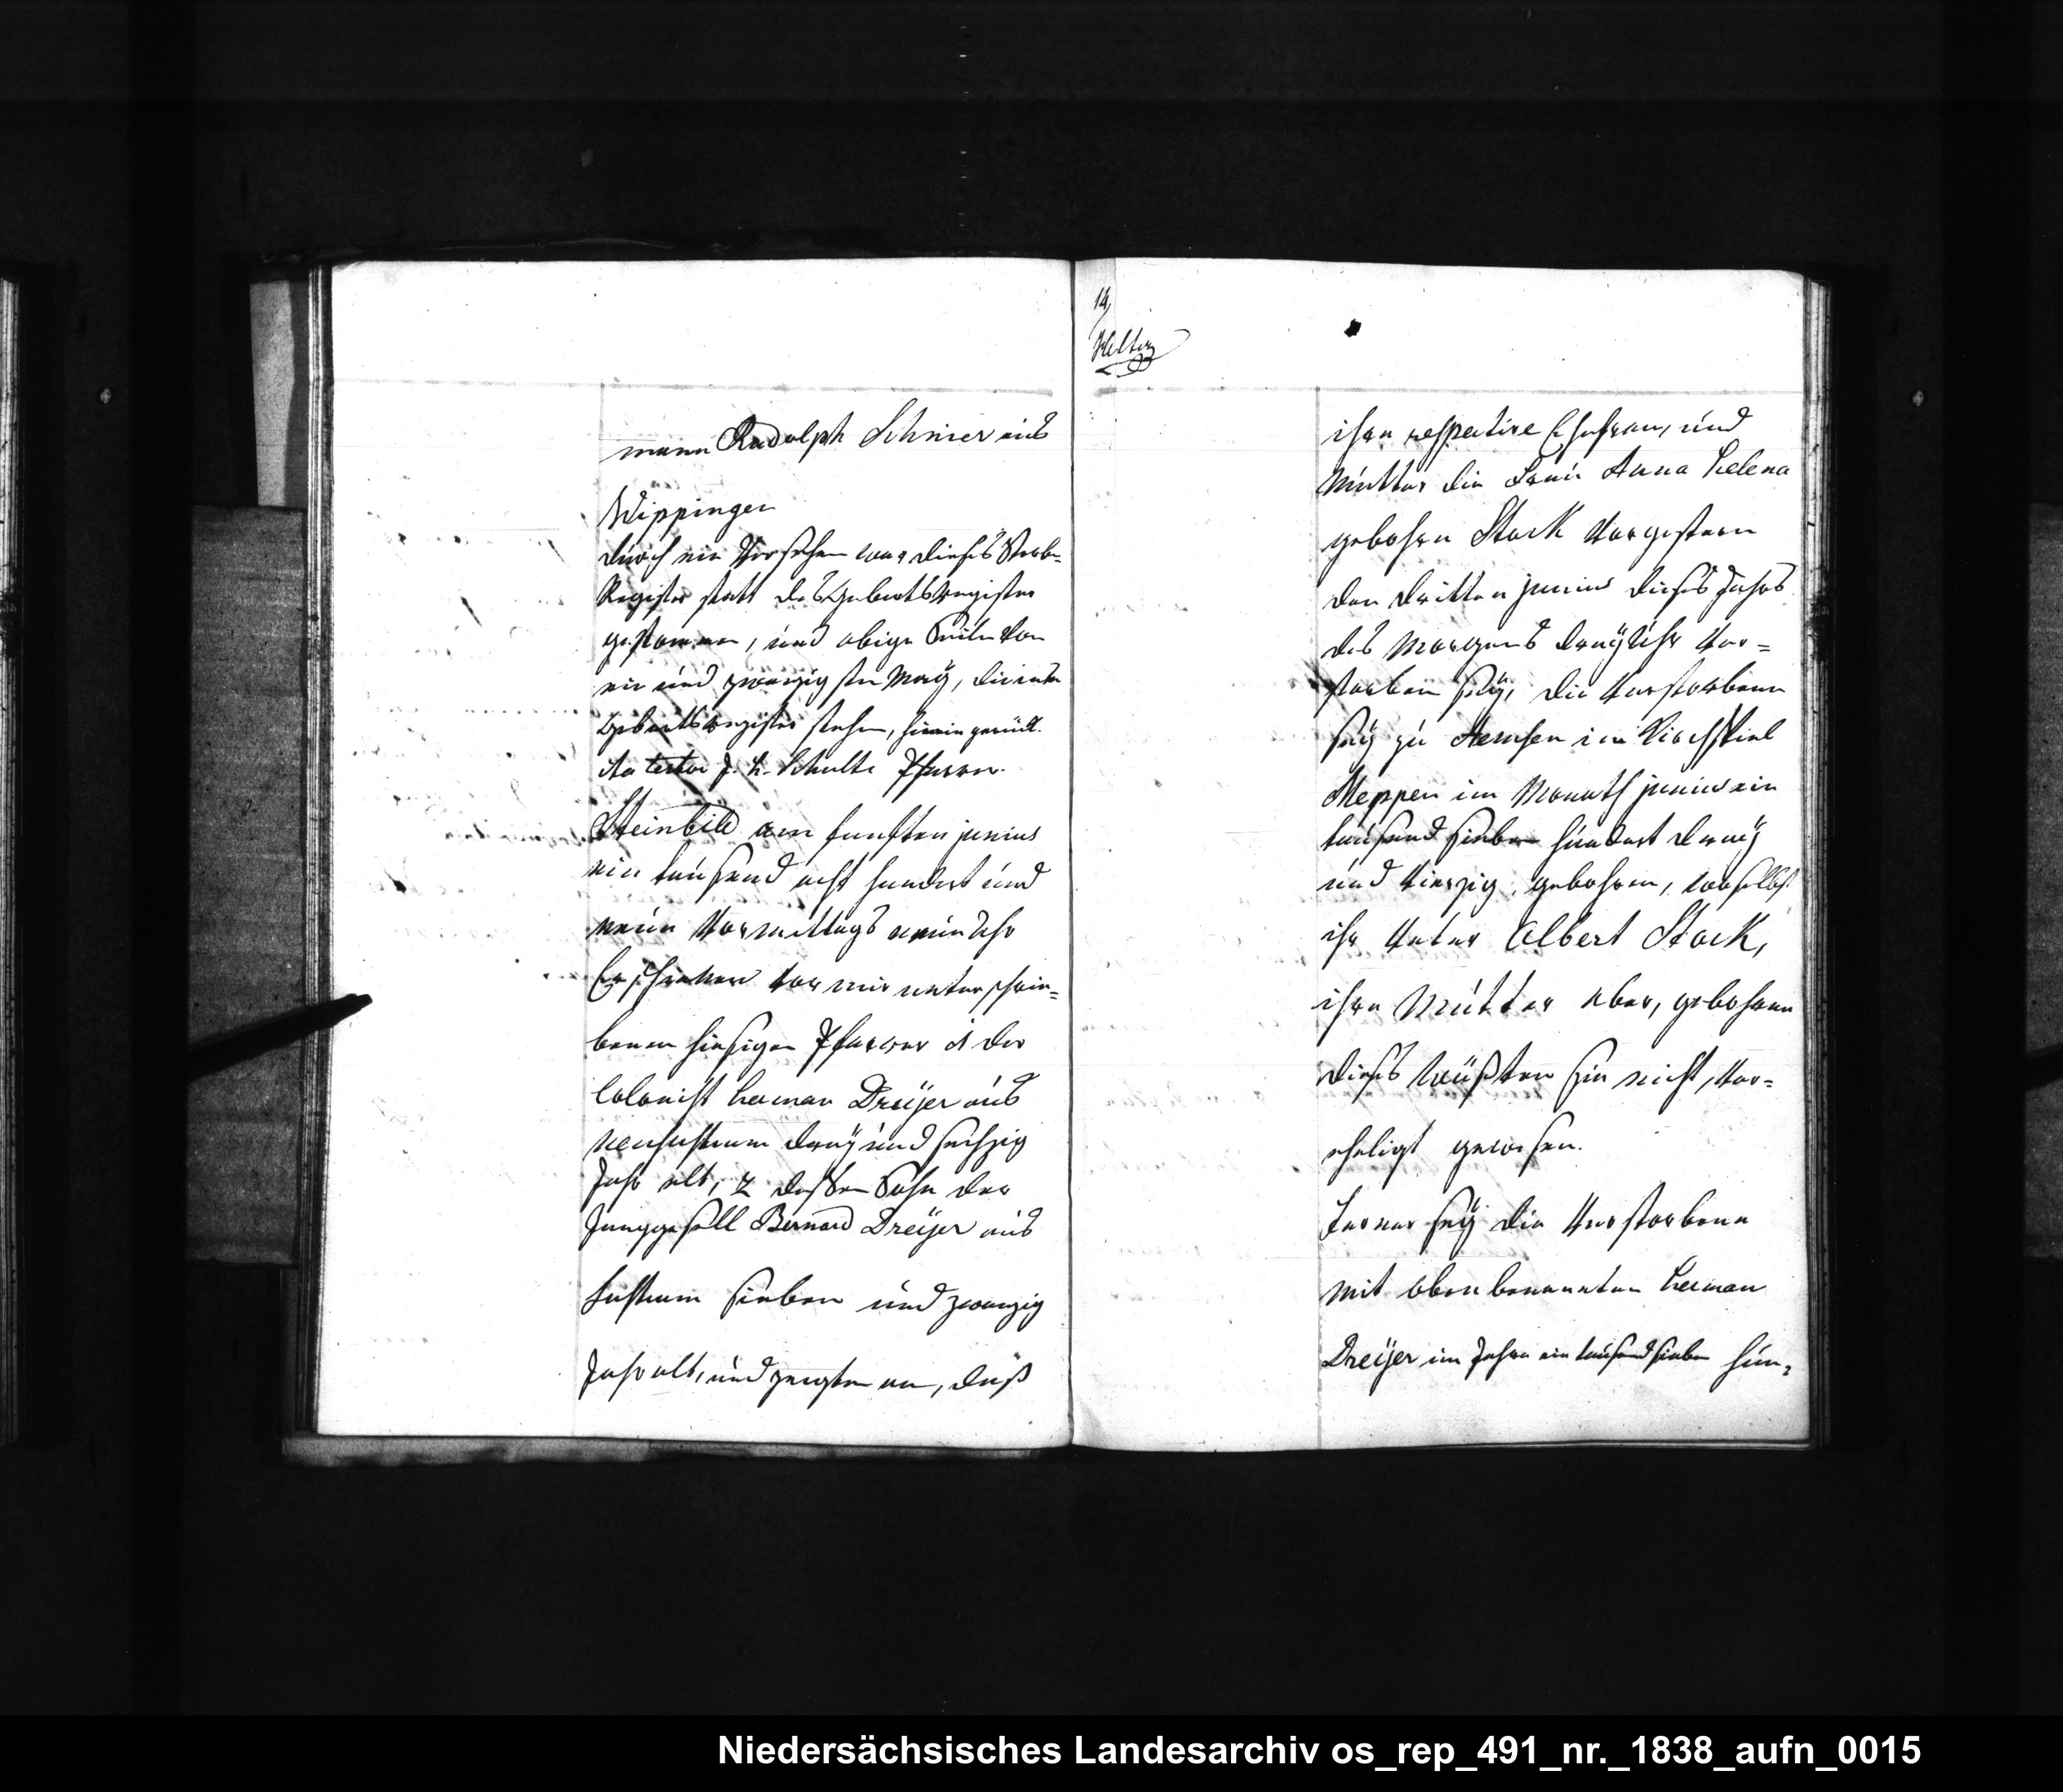 mann Rudolph Schnier aus
Wippingen
durch ein Versehen war dieses Sterbe-
Register statt des Geburtsregister
genommen, und obige Seite von
ein und zwanzigsten Maÿ, die im
Geburtsregister stehen, hierin gerückt.
ita testor J. H. Schulte Pfarrer.
Steinbild am funften junius
ein tausend acht hundert und
neun Vormittags neun Uhr
Erschienen vor mir unterschrie=
benen hiesigen Pfarrer 1 der
Colonist Herman Dreÿer aus
Neusustrum dreÿ und sechzig
Jahr alt, 2 dessen Sohn der
Junggesell Bernard Dreÿer aus
Sustrum sieben und zwanzig
Jahr alt, und zeugten an, daß
14,
ihre respective Ehefrau, und
Mutter die Frau Anna Helena
gebohrn Stark Vorgestern
den dritten junius dieses Jahrs
des Morgens dreÿ Uhr ver=
storben seÿ, die Verstorbene
seÿ zu Hemsen im Kirchspiel
Meppen im Monath junius ein
tausend sieben hundert dreÿ
und vierzig gebohren, woselbst
ihr Vater Albert Stark,
ihre Mutter aber, gebohrene
dieses wüßten sie nicht, ver=
eheligt gewesen.
Ferner seÿ die Verstorbene
mit obenbenannten Herman
Dreÿer im Jahre ein tausend sieben hun=
Niedersächsisches Landesarchiv os_rep_491_nr._1838_aufn_0015